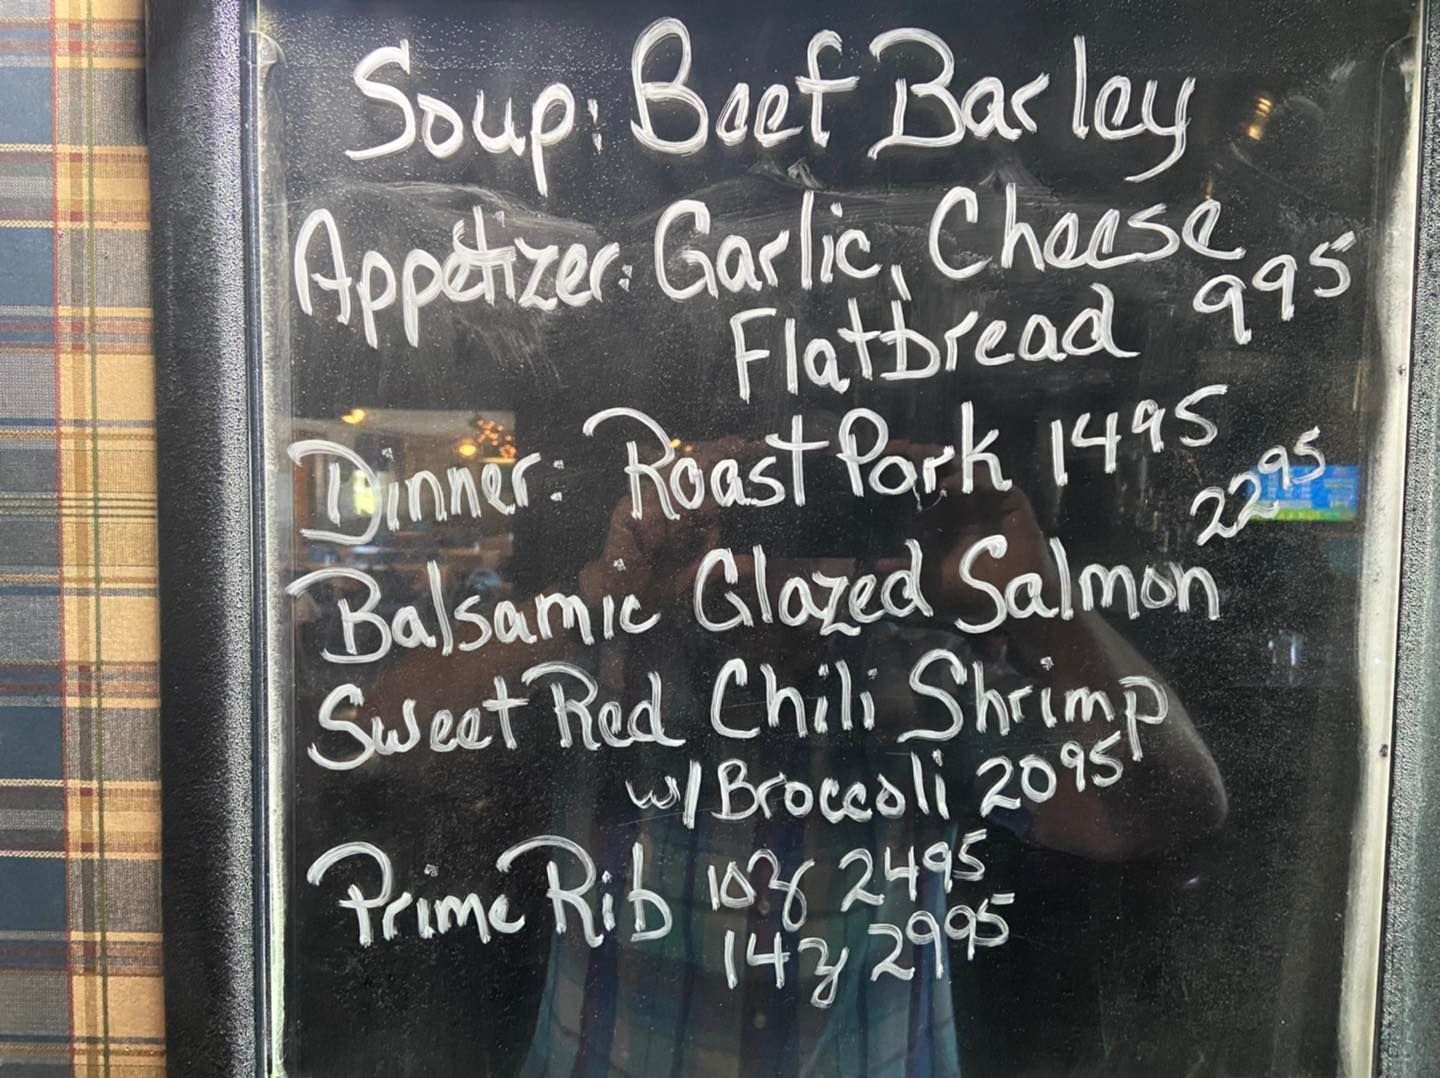 Soup: Beef Barley
Appetizer: Garlic, Cheese
Flatbread 995
Dinner: Roast Pork 1495
Balsamic Glazed Salmon 2295
Sweet Red Chili Shrimp
w/ Broccoli 2095
Prime Rib 10z 2495
14z 2995